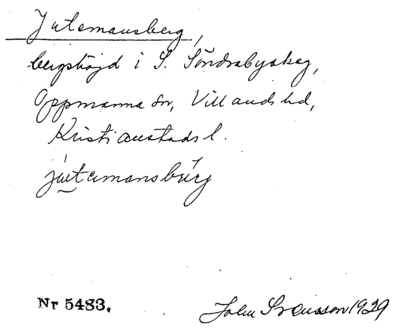 Jutemansberg,
bergshöjd i S. Söndrabyskog,
Oppmanna sn, Villands hd,
Kristianstads l.
jutemansbärg
Nr 5483.
John Svensson 1929